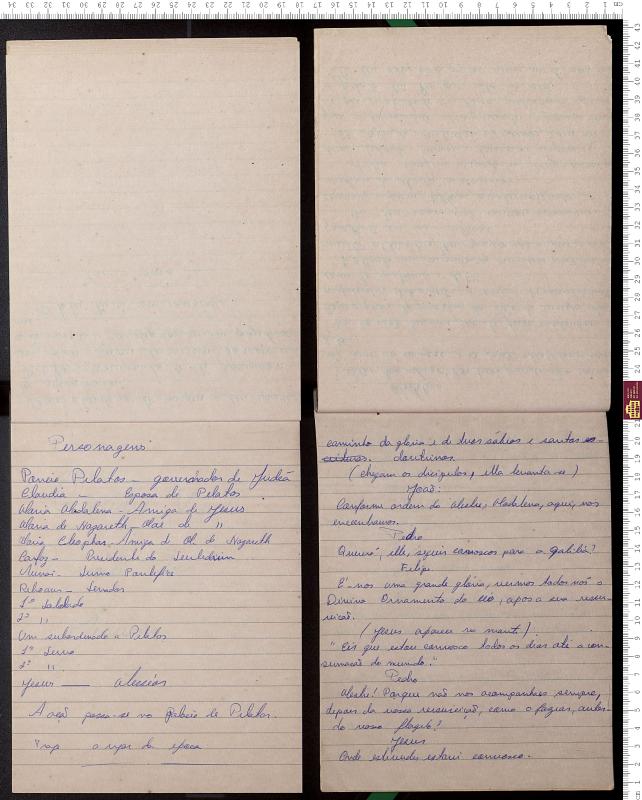 Personagens
Poncio Pilatos - governador de Judeá
Claudia - Esposa de Pilatos
Maria Madalena - Amiga de Jesus
Maria de Nazareth - Mãe de "
Maria Cleophas - Amiga de M. de Nazareth
Caifaz - Presidente do
- Sumo
- Senador
1º Soldado
2º "
Um subordinado a Pilatos
1º Servo
2º "
Jesus — Messias
A ação passa-se no palácio de Pilatos.
a rigor da época
caminho da glória e de tuas sábias e santas es-
crituras. doutrinas.
(chegam os discipulos, ella levanta-se)
João:
Conforme ordens do Mestre, Madalena, aqui, nos
encontramos.
Pedro
elle, seguir comosco para a Galiléa?
Felipe
E'-nos uma grande glória, vermos todos nós o
Divino Ornamento do céo, após a sua ressur-
reição.
(Jesus aparece no mont.)
"Eis que estou comvosco todos os dias até a con-
sumação do mundo."
Pedro
Mestre! Porque não nos acompanhas sempre,
depois da vossa ressurreição, como o fazias, antes
do vosso flagelo?
Jesus
Onde estiverdes estarei comvosco.